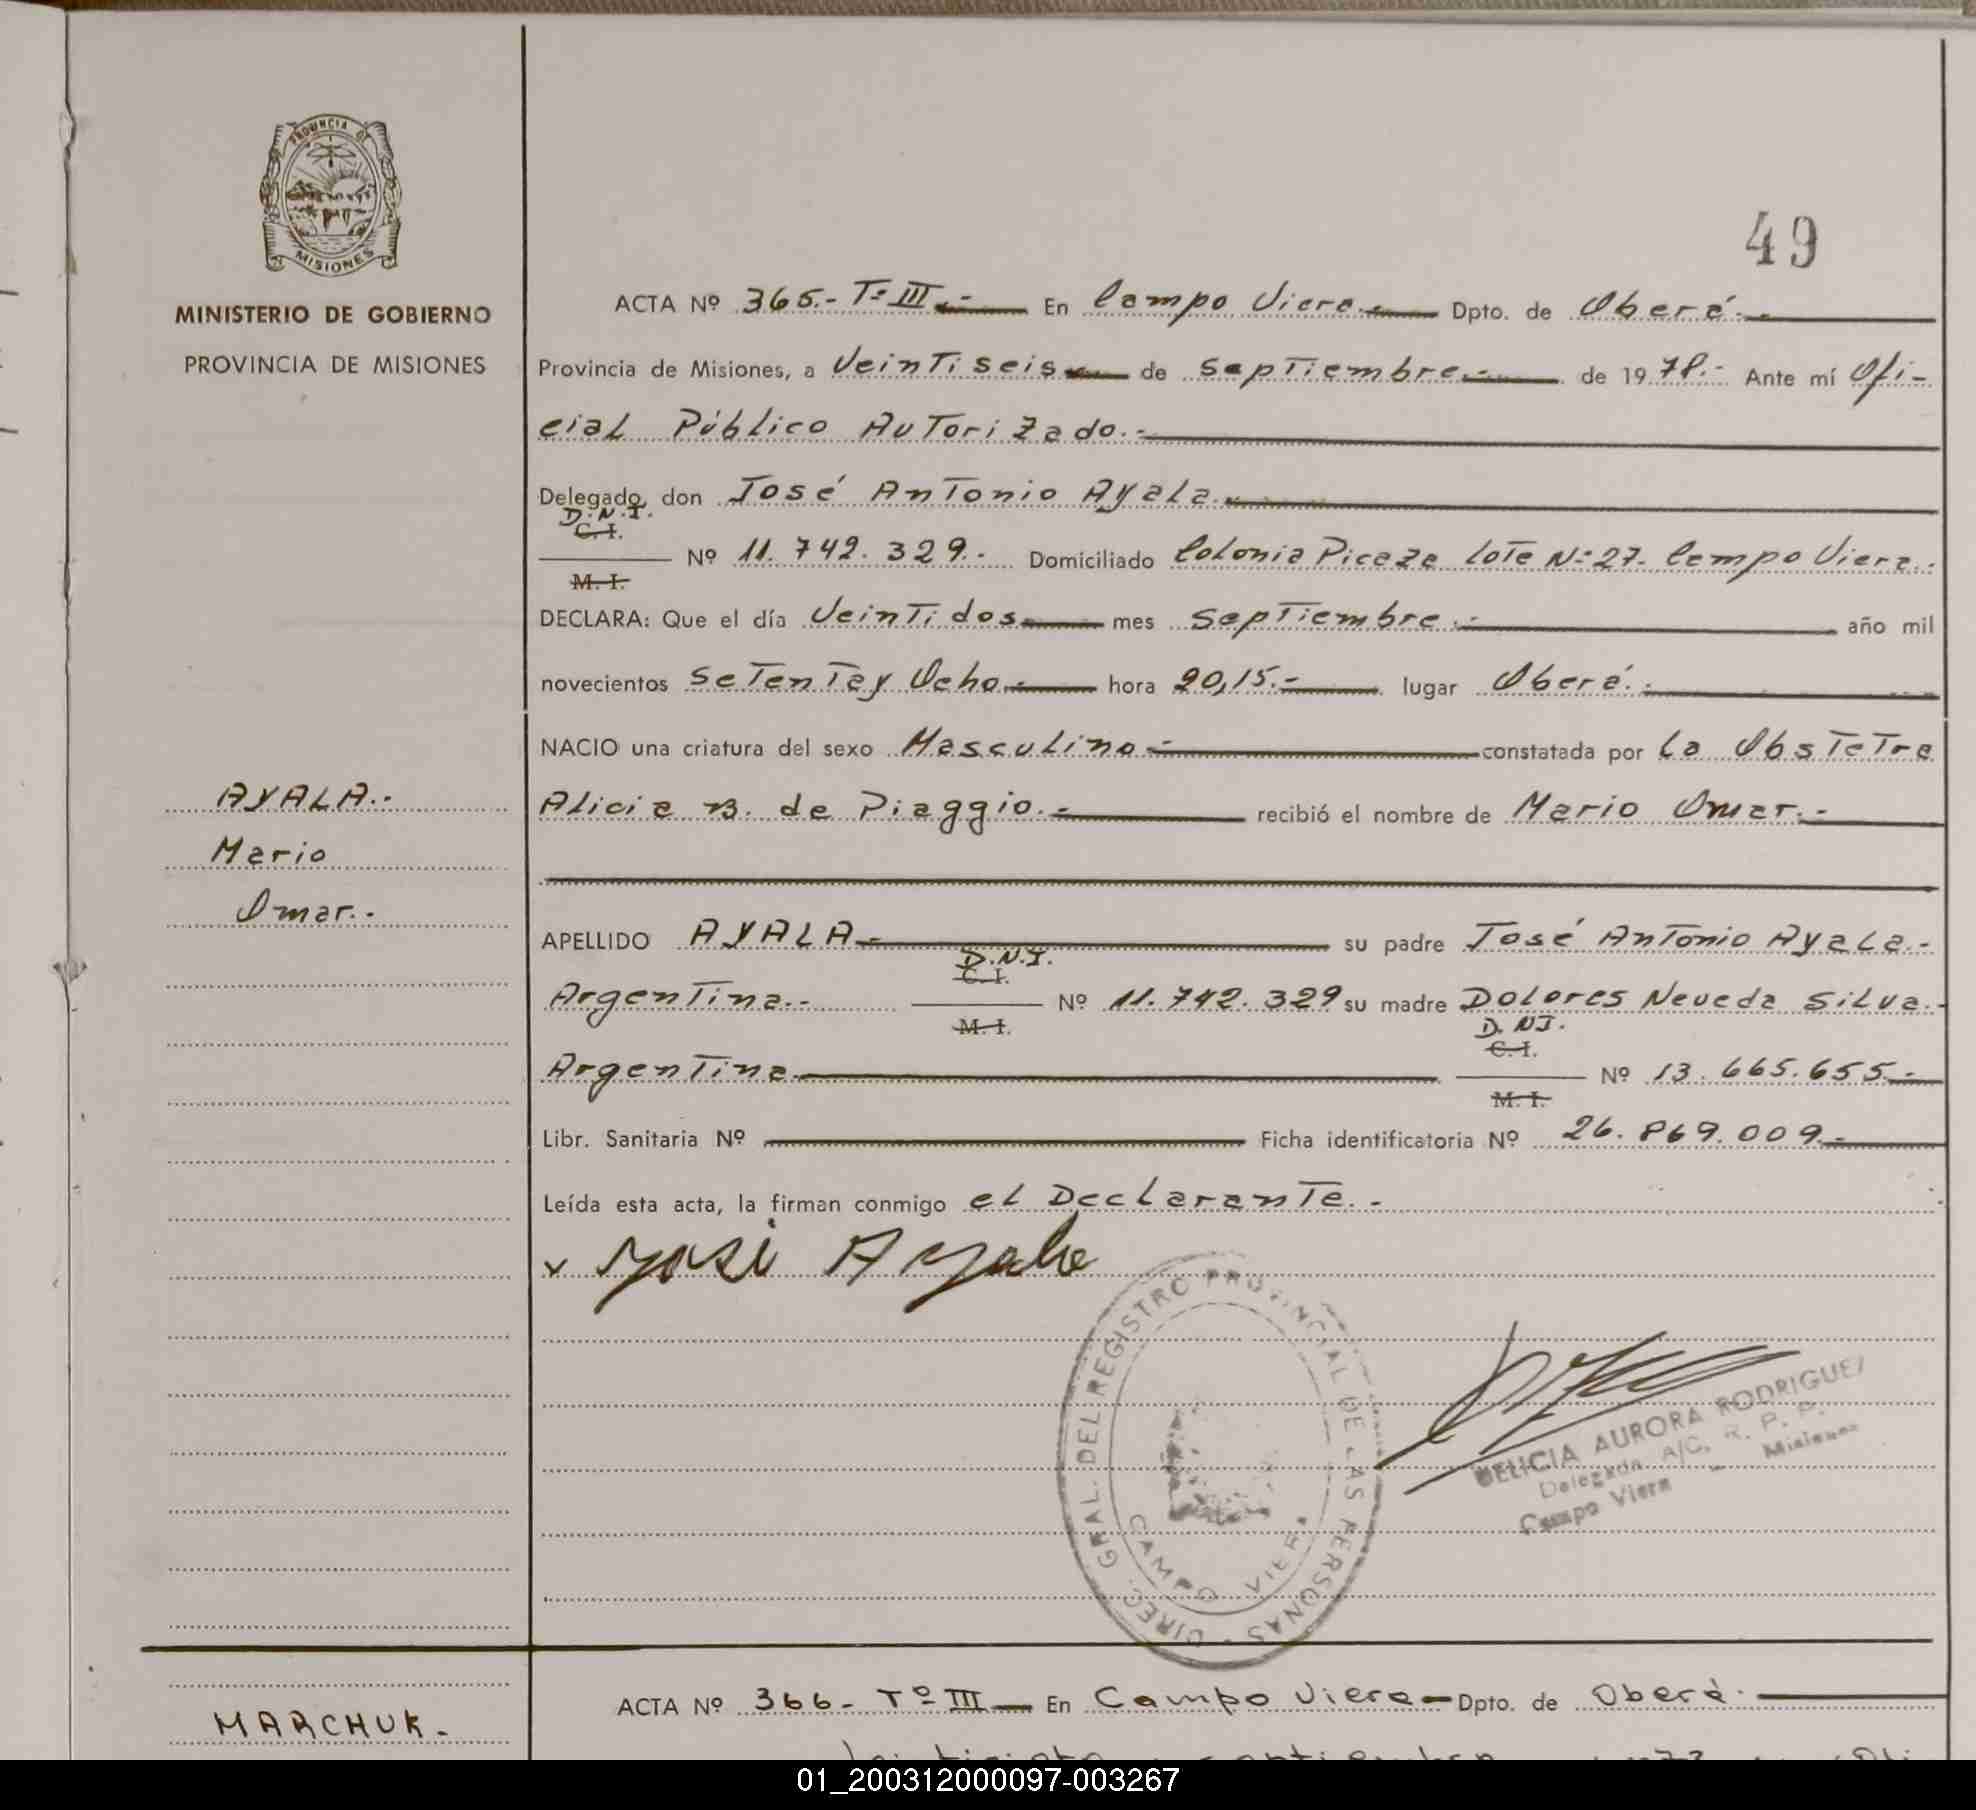 49
PROVINCIA DE
MISIONES
MINISTERIO DE GOBIERNO
PROVINCIA DE MISIONES
ACTA Nº 365.- Tº III.- En Campo Viera.- Dpto. de Oberá.-
Provincia de Misiones, a Veintiseis de Septiembre.- de 1978.- Ante mí Ofi-
cial Público Autorizado.-
Delegado, don José Antonio Ayala.
D.N.I.
C. I.
Nº 11.742.329.- Domiciliado Colonia Picaza Lote Nº 27- Campo Viera.-
M. I.
DECLARA: Que el día Veintidos mes Septiembre.- año mil
novecientos Setenta y Ocho.- hora 20,15.- lugar Oberá.-
NACIO una criatura del sexo Masculino.- constatada por la Obstetra
Alicia B. de Piaggio.- recibió el nombre de Mario Omar.-
AYALA.-
Mario
Omar.-
APELLIDO AYALA.- su padre José Antonio Ayala.-
D.N.I.
C. I.
Argentina.- Nº 11.742.329 su madre Dolores Neveda Silva.-
M. I.
D.NI.
C. I.
Argentina Nº 13.665.655.-
M. I.
Libr. Sanitaria Nº Ficha identificatoria Nº 26.869.009.-
Leída esta acta, la firman conmigo el Declarante.-
x José Ayala
DIREC. GRAL. DEL REGISTRO PROVINCIAL DE LAS PERSONAS
CAMPO VIERA
DELICIA AURORA RODRIGUEZ
Delegada A/C. R. P. P.
Campo Viera - Misiones
MARCHUK.-
ACTA Nº 366- Tº III- En Campo Viera- Dpto. de Oberá.-
01_200312000097-003267